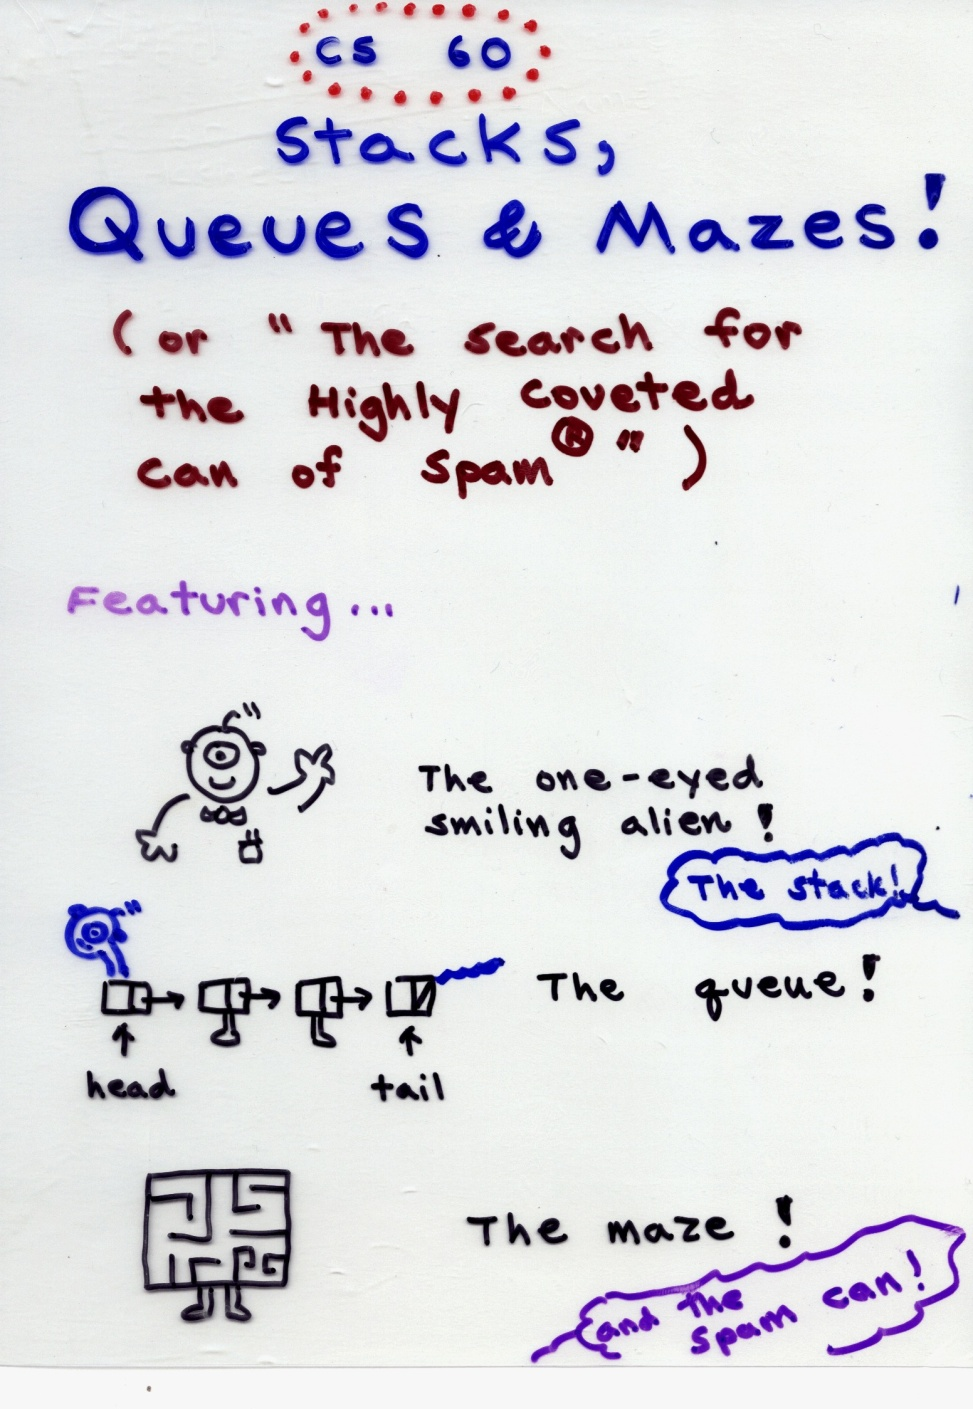 CS 60
Stacks,
Queues & Mazes!
(or "The search for
the Highly Coveted
can of Spam® ")
Featuring...
The one-eyed
smiling alien!
The stack!
The queue!
head
tail
The maze!
and the
spam can!